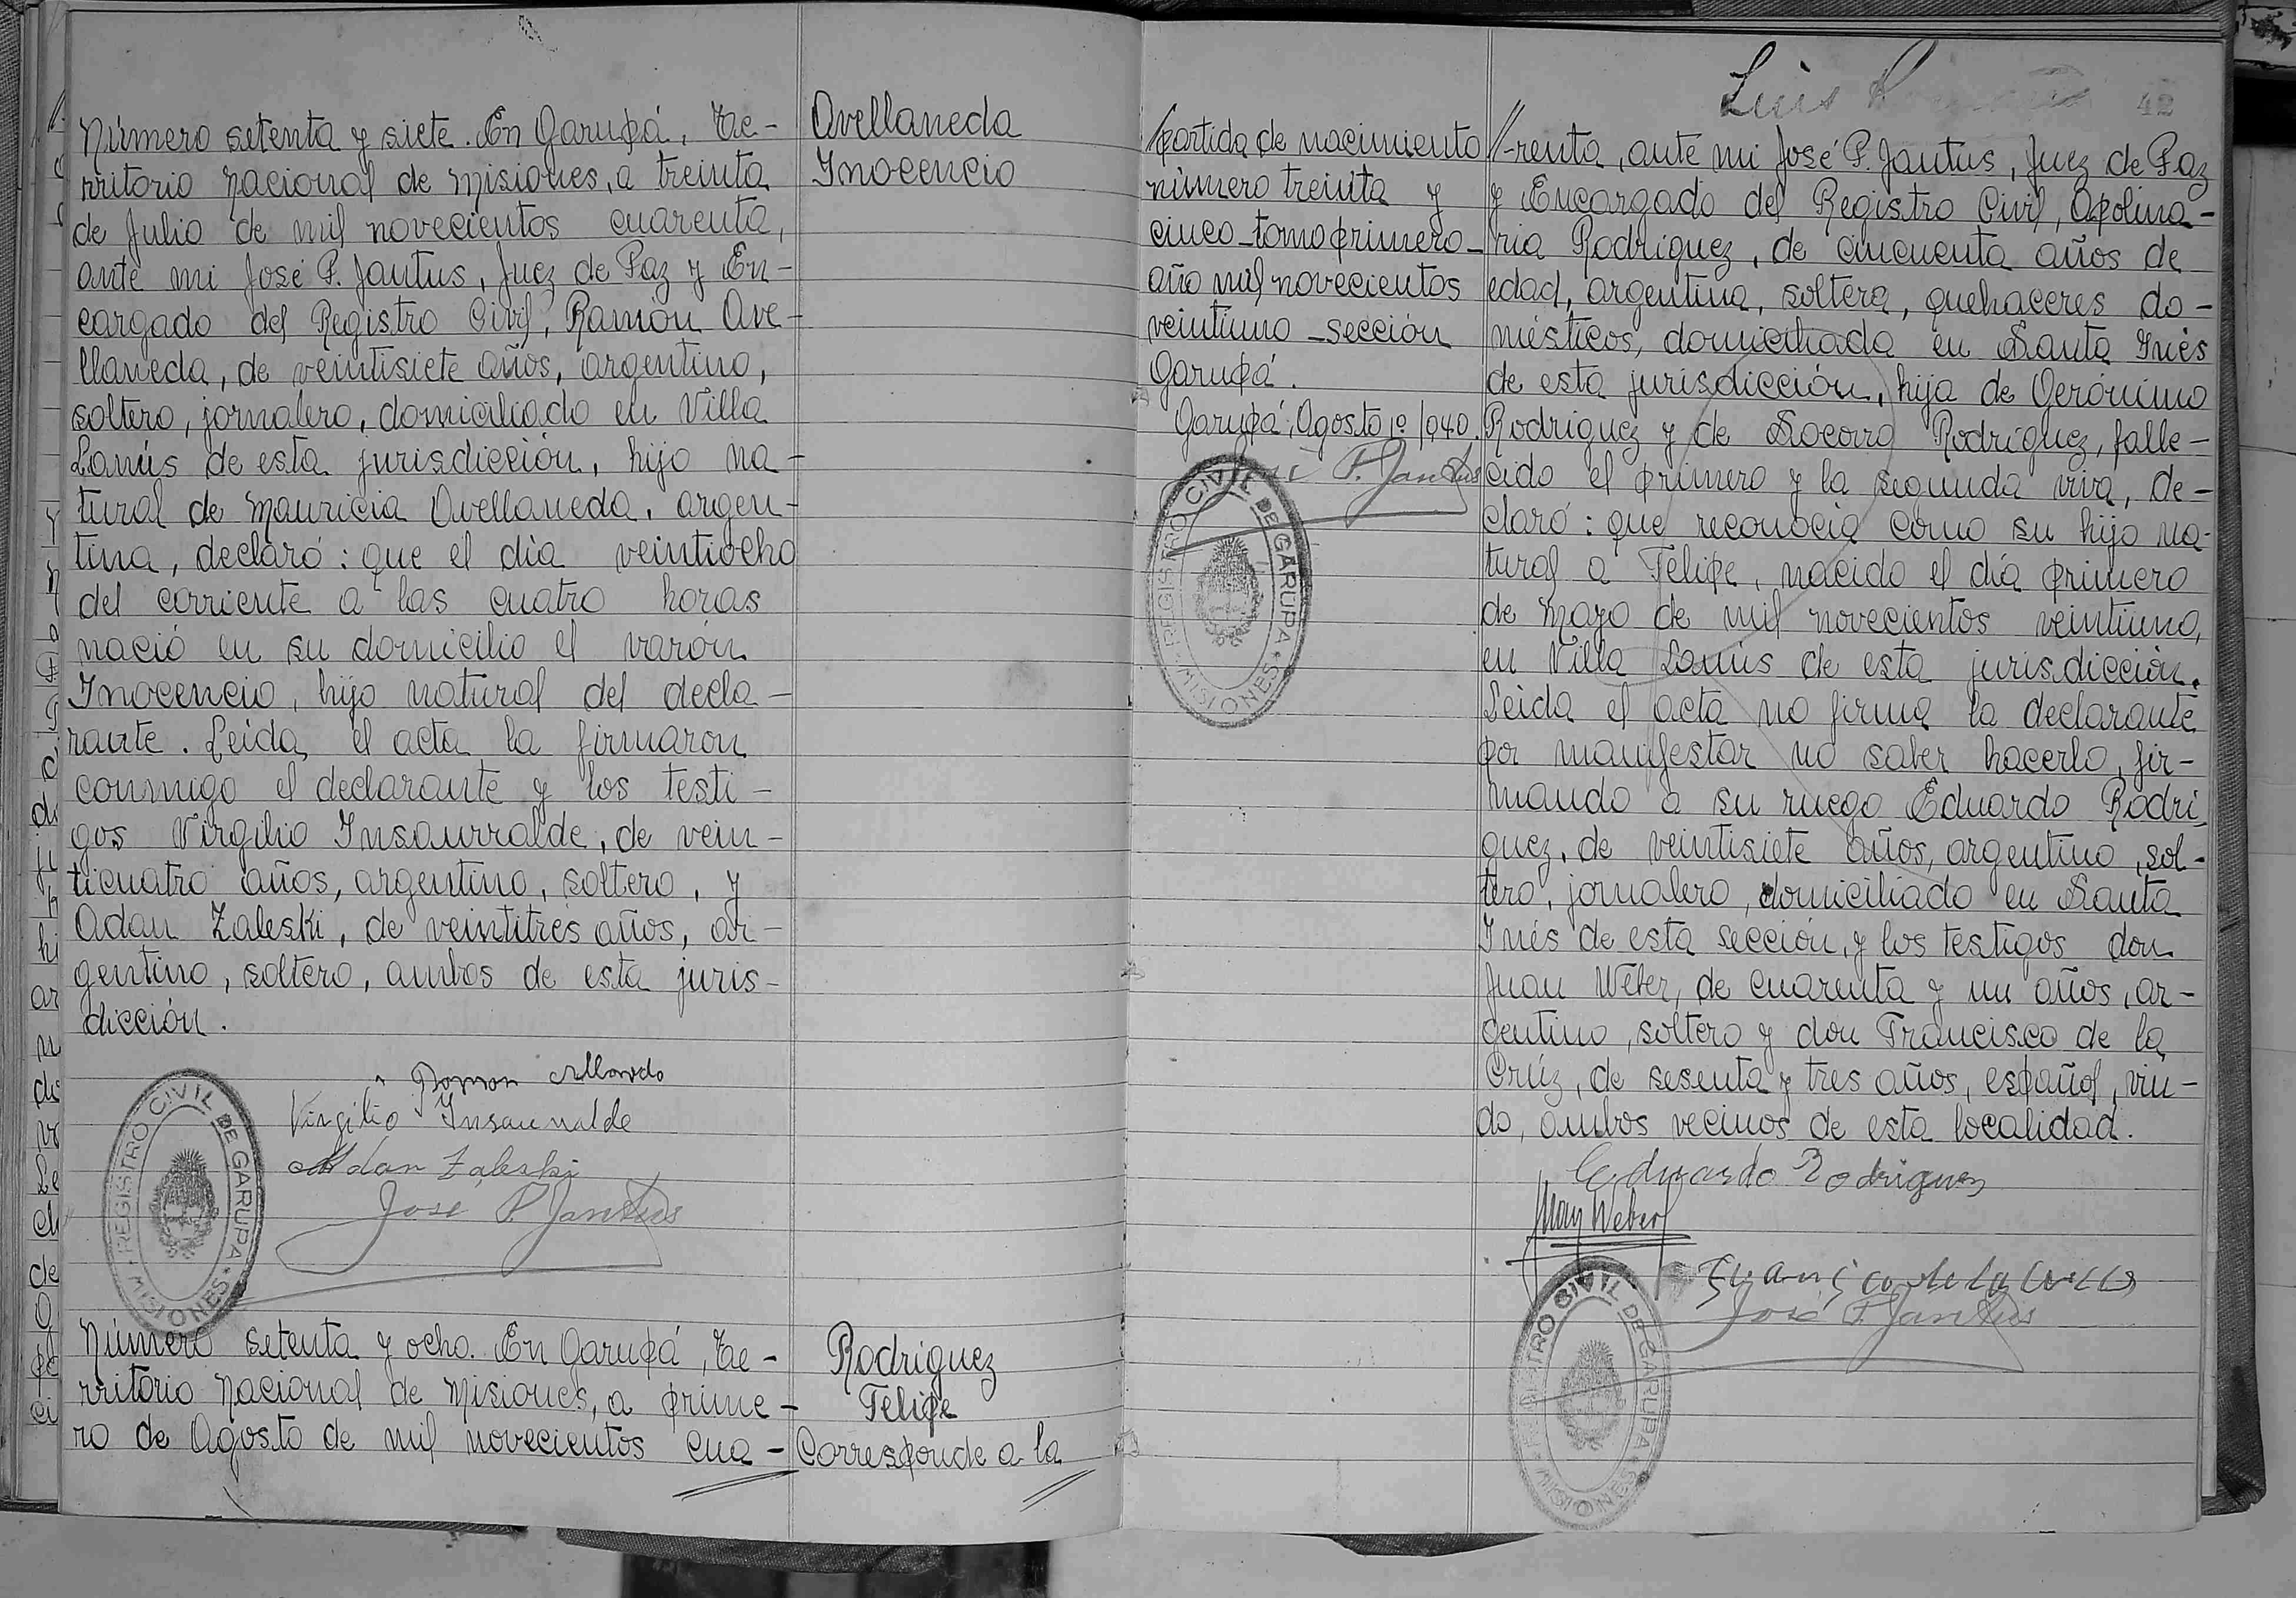 Número setenta y siete. En Garupá, Te-
rritorio Nacional de Misiones, a treinta
de Julio de mil novecientos cuarenta,
ante mi José P. Jantus, Juez de Paz y En-
cargado del Registro Civil, Ramón Ave-
llaneda, de veintisiete años, argentino,
soltero, jornalero, domiciliado en Villa
Lanús de esta jurisdicción, hijo na-
tural de Mauricia Avellaneda, argen-
tina, declaró: que el día veintiocho
del corriente a las cuatro horas
nació en su domicilio el varón
Inocencio, hijo natural del decla-
rante. Leida el acta la firmaron
conmigo el declarante y los testi-
gos Virgilio Insaurralde, de vein-
ticuatro años, argentino, soltero, y
Adan Zaleski, de veintitrés años, ar-
gentino, soltero, ambos de esta juris-
dicción.
Virgilio Insaurralde
Adan Zaleski
José P. Jantus
REGISTRO CIVIL DE GARUPA
MISIONES
Avellaneda
Inocencio
Número setenta y ocho. En Garupá, Te-
rritorio Nacional de Misiones, a prime-
ro de Agosto de mil novecientos cua-
Rodriguez
Felipe
Corresponde a la
partida de nacimiento
número treinta y
cinco-tomo primero-
año mil novecientos
veintiuno-sección
Garupá.
Garupá, Agosto 1º/940.
José P. Jantus
REGISTRO CIVIL DE GARUPA
MISIONES
Luis
42
-renta, ante mi José P. Jantus, Juez de Paz
y Encargado del Registro Civil, Apolina-
ria Rodríguez, de cincuenta años de
edad, argentina, soltera, quehaceres do-
mésticos, domiciliada en Santa Inés
de esta jurisdicción, hija de Gerónimo
Rodriguez y de Socorro Rodríguez, falle-
cido el primero y la segunda viva, de-
claró: que reconocía como su hijo na-
tural a Felipe, nacido el día primero
de Mayo de mil novecientos veintiuno,
en Villa Lanús de esta jurisdicción.
Leida el acta no firma la declarante
por manifestar no saber hacerlo, fir-
mando a su ruego Eduardo Rodri
guez, de veintisiete años, argentino, sol-
tero, jornalero, domiciliado en Santa
Inés de esta sección, y los testigos don
Juan Weber, de cuarenta y un años, ar-
gentino, soltero y don Francisco de la
Crúz, de sesenta y tres años, español, viu-
do, ambos vecinos de esta localidad.
Eduardo Rodriguez
Juan Weber
José P. Jantus
REGISTRO CIVIL DE GARUPA
MISIONES